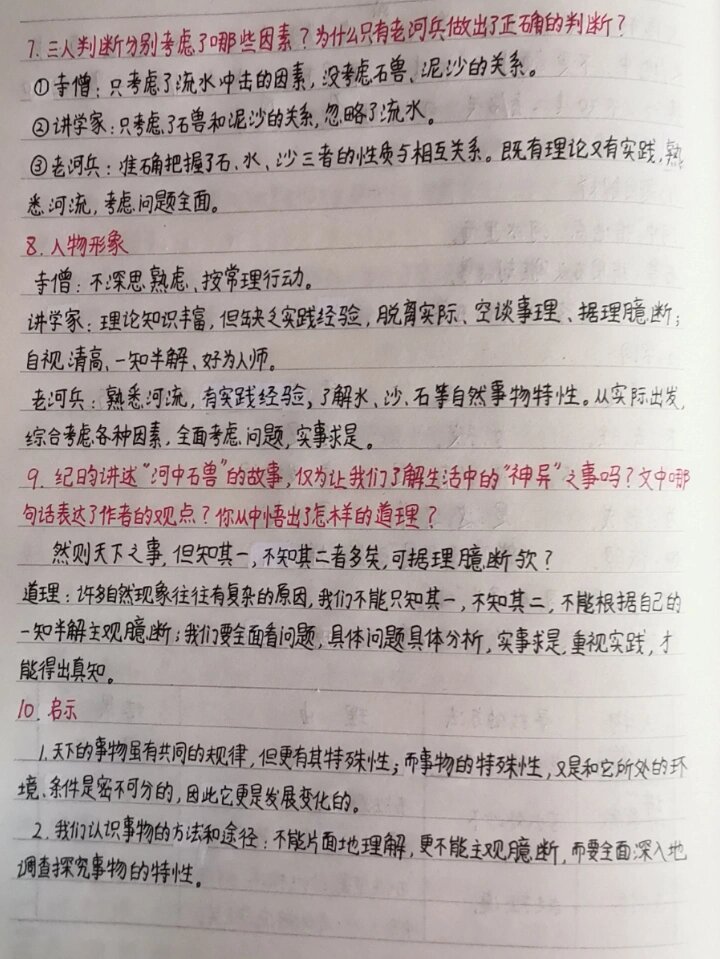 7. 三人判断分别考虑了哪些因素？为什么只有老河兵做出了正确的判断？
①寺僧：只考虑了流水冲击的因素，没考虑石兽、泥沙的关系。
②讲学家：只考虑了石兽和泥沙的关系，忽略了流水。
③老河兵：准确把握了石、水、沙三者的性质与相互关系。既有理论又有实践，熟
悉河流，考虑问题全面。
8. 人物形象
寺僧：不深思熟虑、按常理行动。
讲学家：理论知识丰富，但缺乏实践经验，脱离实际、空谈事理、据理臆断；
自视清高、一知半解、好为人师。
老河兵：熟悉河流，有实践经验，了解水、沙、石等自然事物特性。从实际出发，
综合考虑各种因素，全面考虑问题，实事求是。
9. 纪昀讲述“河中石兽”的故事，仅为让我们了解生活中的“神异”之事吗？文中哪
句话表达了作者的观点？你从中悟出了怎样的道理？
然则天下之事，但知其一，不知其二者多矣，可据理臆断欤？
道理：许多自然现象往往有复杂的原因，我们不能只知其一，不知其二，不能根据自己的
一知半解主观臆断；我们要全面看问题，具体问题具体分析，实事求是，重视实践，才
能得出真知。
10. 启示
1. 天下的事物虽有共同的规律，但更有其特殊性；而事物的特殊性，又是和它所处的环
境、条件是密不可分的，因此它更是发展变化的。
2. 我们认识事物的方法和途径：不能片面地理解，更不能主观臆断，而要全面深入地
调查探究事物的特性。